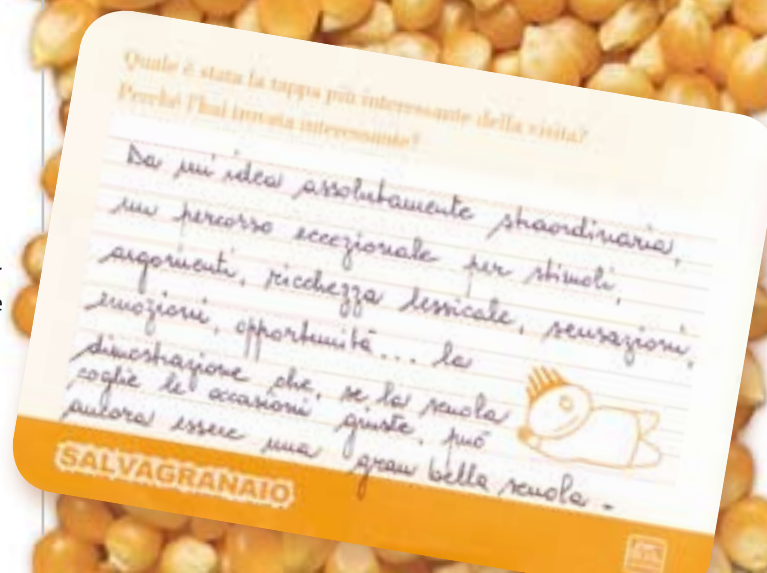 Quale è stata la tappa più interessante della visita?
Perché l'hai trovata interessante?
Da un'idea assolutamente straordinaria,
un percorso eccezionale per stimoli,
argomenti, ricchezza lessicale, sensazioni,
emozioni, opportunità... la
dimostrazione che, se la scuola
coglie le occasioni giuste, può
ancora essere una gran bella scuola.
SALVAGRANAIO